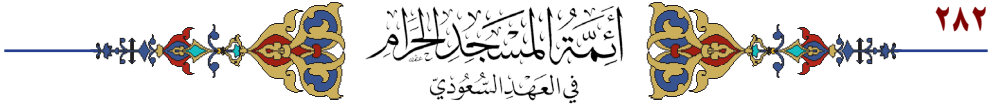 ٢٨٢
أَئِمَّةُ المَسْجِدِ الحَرَامِ
فِي العَهْدِ السُّعُودِيّ